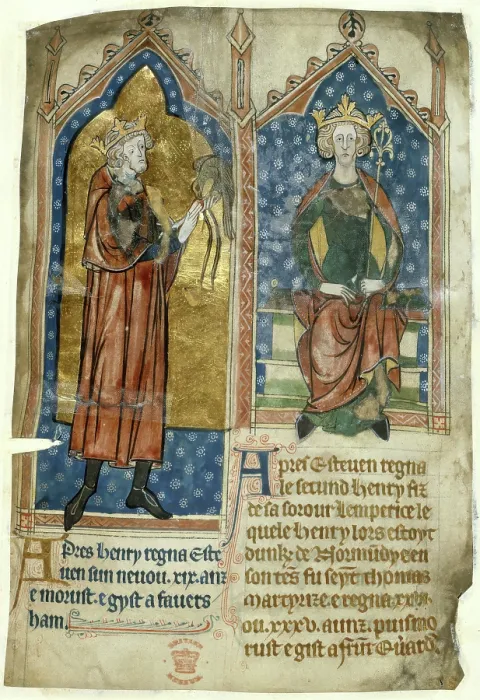 Apres henry regna Este
uen sun neuou. xix. anz
e morust. e gyst a fauers
ham.
Apres Esteuen regna
le secund henry fiz
de sa sorour lemperice le
quele henry lors estoyt
duuk de Normūdye en
son tēs fu seynt thomas
martyrize. e regna
ou. xxxv. aunz. puis mo
rust e gist a frūt
BRITISH
MUSEUM